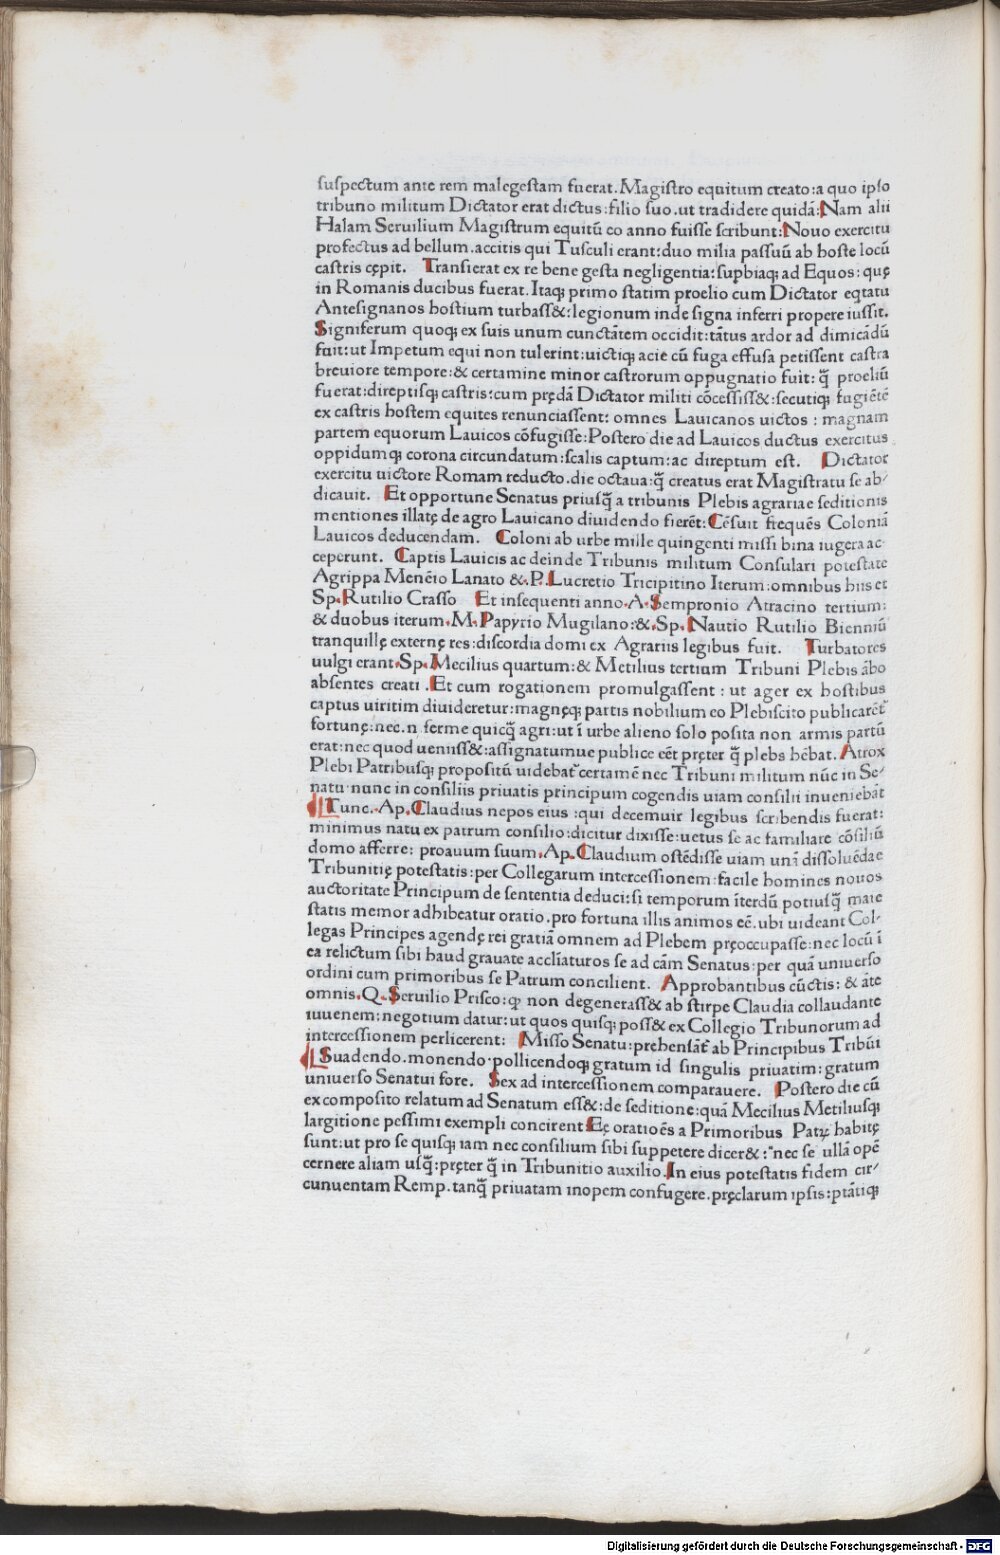 suspectum ante rem malegestam fuerat. Magistro equitum creato: a quo ipso
tribuno militum Dictator erat dictus: filio suo. ut tradidere quidā: Nam alii
Halam Seruilium Magistrum equitū eo anno fuisse scribunt: Nouo exercitu
profectus ad bellum. accitis qui Tusculi erant: duo milia passuū ab hoste locū
castris cępit. Transierat ex re bene gesta negligentia: supbiaq; ad Equos: quę
in Romanis ducibus fuerat. Itaq; primo statim proelio cum Dictator eqtatu
Antesignanos hostium turbass&: legionum inde signa inferri propere iussit.
Signiferum quoq; ex suis unum cunctātem occidit: tātus ardor ad dimicādū
fuit: ut Impetum equi non tulerint: uictiq; acie cū fuga effusa petissent castra
breuiore tempore: & certamine minor castrorum oppugnatio fuit: q̄ proeliū
fuerat: direptisq; castris: cum prędā Dictator militi cōcessiss&: secutiq; fugiētē
ex castris hostem equites renunciassent: omnes Lauicanos uictos: magnam
partem equorum Lauicos cōfugisse: Postero die ad Lauicos ductus exercitus
oppidumq; corona circundatum: scalis captum: ac direptum est. Dictator
exercitu uictore Romam reducto. die octaua: q̄ creatus erat Magistratu se ab/
dicauit. Et opportune Senatus priusq̄ a tribunis Plebis agrariae seditionis
mentiones illatę de agro Lauicano diuidendo fierēt: Cēsuit frequēs Coloniā
Lauicos deducendam. Coloni ab urbe mille quingenti missi bina iugera ac
ceperunt. Captis Lauicis ac deinde Tribunis militum Consulari potestate
Agrippa Menēio Lanato &. P. Lucretio Tricipitino Iterum: omnibus hiis et
Sp. Rutilio Crasso Et insequenti anno. A. Sempronio Atracino tertium:
& duobus iterum. M. Papyrio Mugilano: &. Sp. Nautio Rutilio Bienniū
tranquillę externę res: discordia domi ex Agrariis legibus fuit. Turbatores
uulgi erant. Sp. Mecilius quartum: & Metilius tertium Tribuni Plebis ābo
absentes creati. Et cum rogationem promulgassent: ut ager ex hostibus
captus uiritim diuideretur: magnęq; partis nobilium eo Plebiscito publicarēt
fortunę: nec. n ferme quicq̄ agri: ut ī urbe alieno solo posita non armis partū
erat: nec quod ueniss&: assignatumue publice eēt pręter q̄ plebs hēbat. Atrox
Plebi Patribusq; propositū uidebat certamē nec Tribuni militum nūc in Se/
natu nunc in consiliis priuatis principum cogendis uiam consilii inueniebāt
Tunc. Ap. Claudius nepos eius: qui decemuir legibus scribendis fuerat:
minimus natu ex patrum consilio: dicitur dixisse: uetus se ac familiare cōsiliū
domo afferre: proauum suum. Ap. Claudium ostēdisse uiam unā dissoluēdae
Tribunitię potestatis: per Collegarum intercessionem: facile homines nouos
auctoritate Principum de sententia deduci: si temporum īterdū potiusq̄ maie
statis memor adhibeatur oratio. pro fortuna illis animos eē. ubi uideant Col/
legas Principes agendę rei gratiā omnem ad Plebem pręoccupasse: nec locū ī
ea relictum sibi haud grauate accliaturos se ad cām Senatus: per quā uniuerso
ordini cum primoribus se Patrum concilient. Approbantibus cūctis: & āte
omnis. Q. Seruilio Prisco: q non degenerass& ab stirpe Claudia collaudante
iuuenem: negotium datur: ut quos quisq; poss& ex Collegio Tribunorum ad
intercessionem perlicerent: Misso Senatu: prehensāt ab Principibus Tribūi
Suadendo. monendo pollicendoq; gratum id singulis priuatim: gratum
uniuerso Senatui fore. Sex ad intercessionem comparauere. Postero die cū
ex composito relatum ad Senatum ess&: de seditione: quā Mecilius Metiliusq;
largitione pessimi exempli concirent Eę oratioēs a Primoribus Patꝝ habitę
sunt: ut pro se quisq; iam nec consilium sibi suppetere dicer&: nec se ullā opē
cernere aliam usq̄: pręter q̄ in Tribunitio auxilio. In eius potestatis fidem cir/
cunuentam Remp. tanq̄ priuatam inopem confugere. pręclarum ipsis: ptātiq;
Digitalisierung gefördert durch die Deutsche Forschungsgemeinschaft - DFG